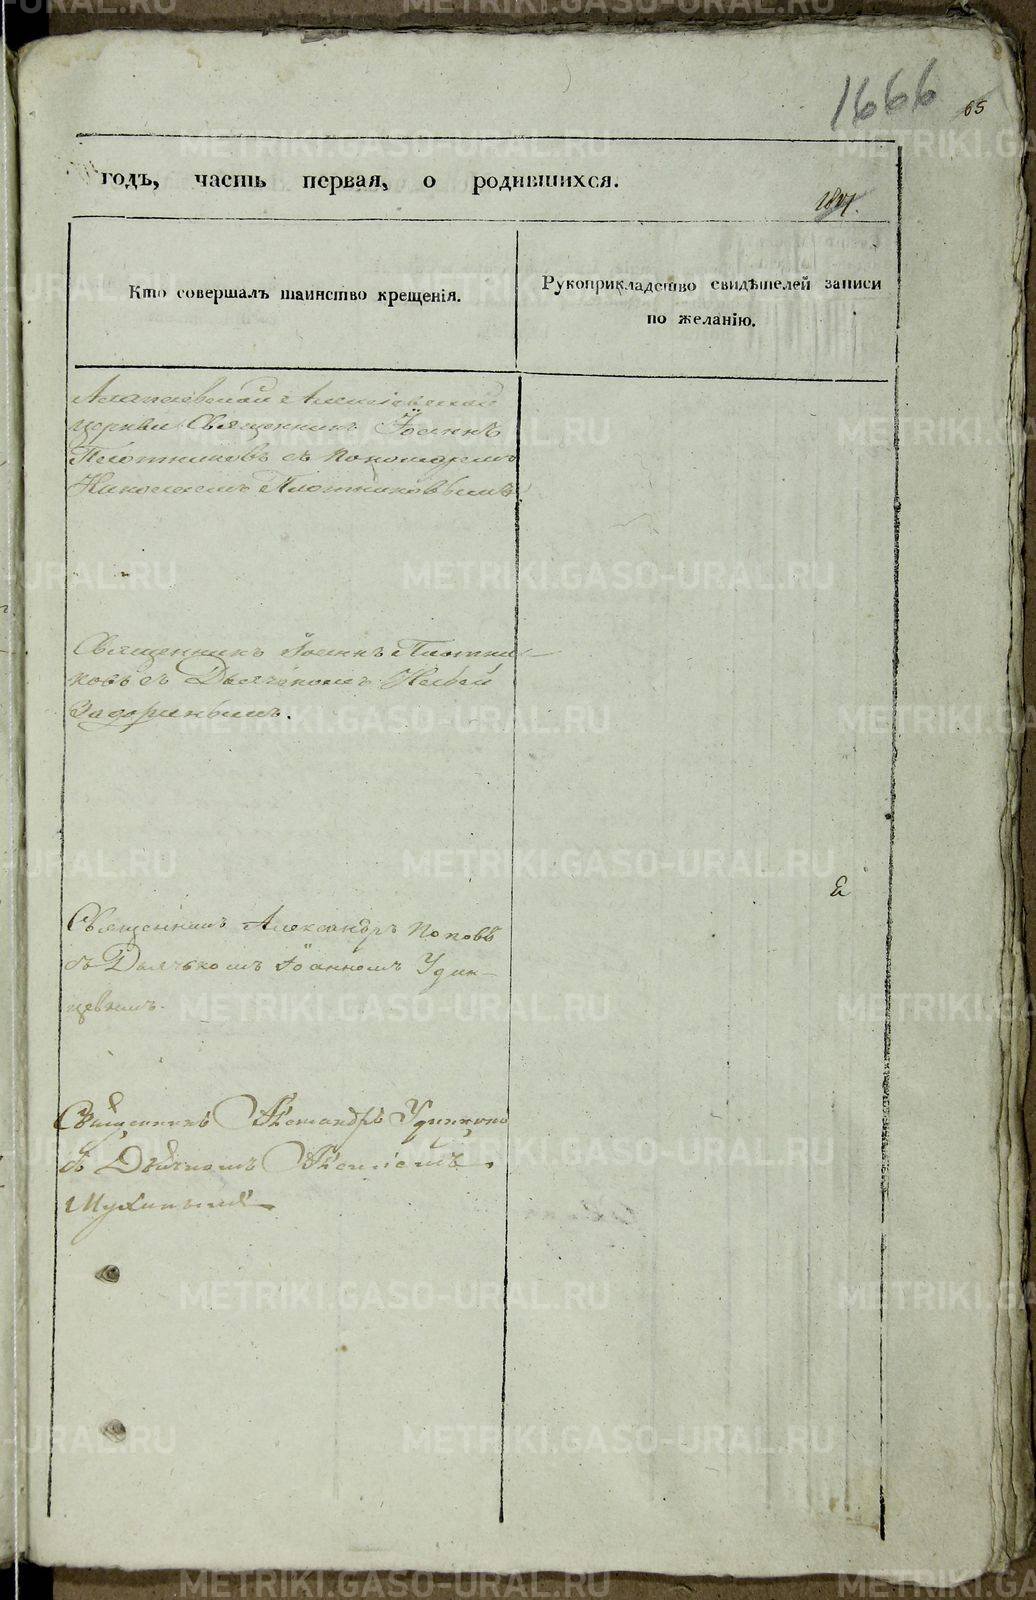 1666
65
годъ, часть первая, о родившихся.
Кто совершалъ таинство крещенія.
Рукоприкладство свидѣтелей записи
по желанію.
Алапаевской Алексіевской
церкви Священникъ Іоаннъ
Плотниковъ съ пономаремъ
Николаемъ Плотниковымъ
Священникъ Іоаннъ Плотни-
ковъ съ Дьячкомъ
Задоринымъ.
Священникъ Александръ Поповъ
съ Дьячкомъ Іоанномъ Удин-
цевымъ.
Священникъ Александръ Удинцовъ
съ Дьячкомъ Алексіемъ
Мухинымъ
METRIKI.GASO-URAL.RU